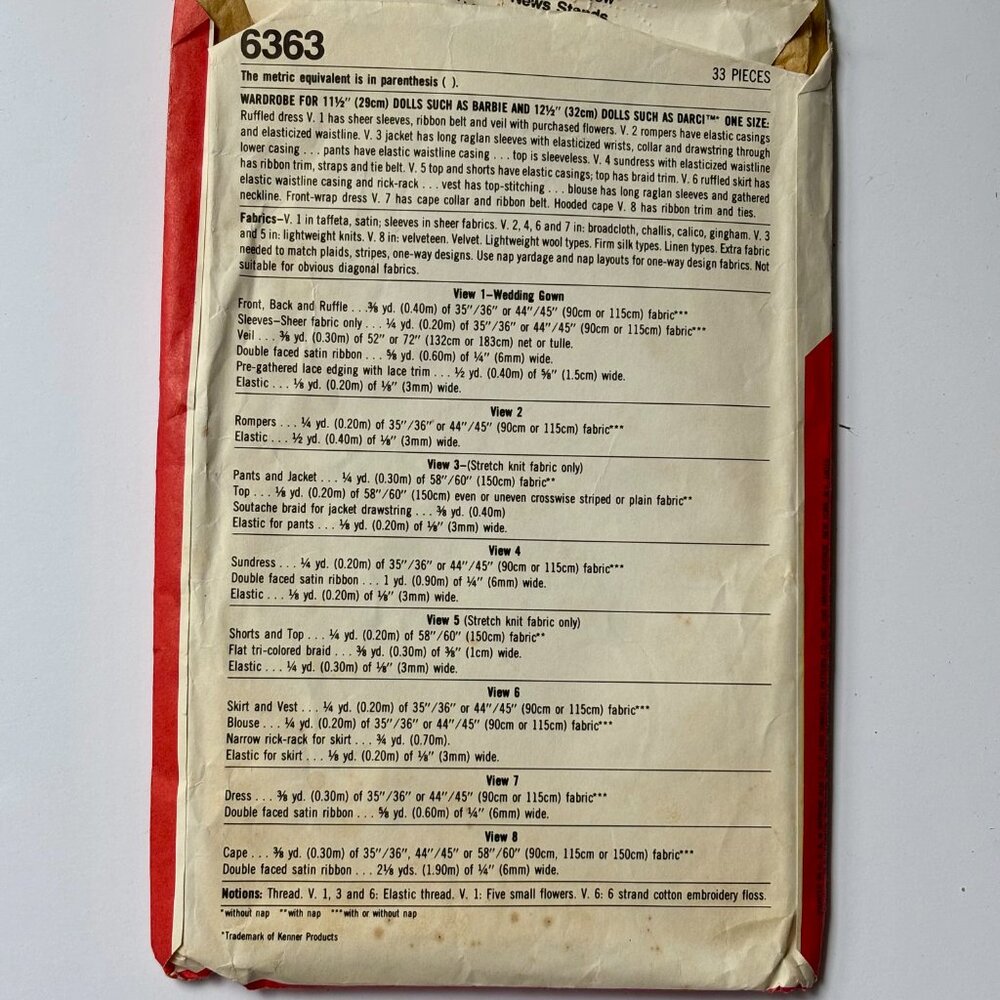 News Stands
6363
33 PIECES
The metric equivalent is in parenthesis ( ).
WARDROBE FOR 11½" (29cm) DOLLS SUCH AS BARBIE AND 12½" (32cm) DOLLS SUCH AS DARCI™* ONE SIZE:
Ruffled dress V. 1 has sheer sleeves, ribbon belt and veil with purchased flowers. V. 2 rompers have elastic casings
and elasticized waistline. V. 3 jacket has long raglan sleeves with elasticized wrists, collar and drawstring through
lower casing . . . pants have elastic waistline casing . . . top is sleeveless. V. 4 sundress with elasticized waistline
has ribbon trim, straps and tie belt. V. 5 top and shorts have elastic casings; top has braid trim. V. 6 ruffled skirt has
elastic waistline casing and rick-rack . . . vest has top-stitching . . . blouse has long raglan sleeves and gathered
neckline. Front-wrap dress V. 7 has cape collar and ribbon belt. Hooded cape V. 8 has ribbon trim and ties.
Fabrics–V. 1 in taffeta, satin; sleeves in sheer fabrics. V. 2, 4, 6 and 7 in: broadcloth, challis, calico, gingham. V. 3
and 5 in: lightweight knits. V. 8 in: velveteen. Velvet. Lightweight wool types. Firm silk types. Linen types. Extra fabric
needed to match plaids, stripes, one-way designs. Use nap yardage and nap layouts for one-way design fabrics. Not
suitable for obvious diagonal fabrics.
View 1–Wedding Gown
Front, Back and Ruffle . . .⅜ yd. (0.40m) of 35"/36" or 44"/45" (90cm or 115cm) fabric***
Sleeves–Sheer fabric only . . . ¼ yd. (0.20m) of 35"/36" or 44"/45" (90cm or 115cm) fabric***
Veil . . . ⅜ yd. (0.30m) of 52" or 72" (132cm or 183cm) net or tulle.
Double faced satin ribbon . . . ⅝ yd. (0.60m) of ¼" (6mm) wide.
Pre-gathered lace edging with lace trim . . . ½ yd. (0.40m) of ⅝" (1.5cm) wide.
Elastic . . . ⅛ yd. (0.20m) of ⅛" (3mm) wide.
View 2
Rompers . . . ¼ yd. (0.20m) of 35"/36" or 44"/45" (90cm or 115cm) fabric***
Elastic . . . ½ yd. (0.40m) of ⅛" (3mm) wide.
View 3–(Stretch knit fabric only)
Pants and Jacket . . . ¼ yd. (0.30m) of 58"/60" (150cm) fabric**
Top . . . ⅛ yd. (0.20m) of 58"/60" (150cm) even or uneven crosswise striped or plain fabric**
Soutache braid for jacket drawstring . . . ⅜ yd. (0.40m)
Elastic for pants . . . ⅛ yd. (0.20m) of ⅛" (3mm) wide.
View 4
Sundress . . . ¼ yd. (0.20m) of 35"/36" or 44"/45" (90cm or 115cm) fabric***
Double faced satin ribbon . . . 1 yd. (0.90m) of ¼" (6mm) wide.
Elastic . . . ⅛ yd. (0.20m) of ⅛" (3mm) wide.
View 5 (Stretch knit fabric only)
Shorts and Top . . . ¼ yd. (0.20m) of 58"/60" (150cm) fabric**
Flat tri-colored braid . . . ⅜ yd. (0.30m) of ⅜" (1cm) wide.
Elastic . . . ¼ yd. (0.30m) of ⅛" (3mm) wide.
View 6
Skirt and Vest . . . ¼ yd. (0.20m) of 35"/36" or 44"/45" (90cm or 115cm) fabric***
Blouse . . . ¼ yd. (0.20m) of 35"/36" or 44"/45" (90cm or 115cm) fabric***
Narrow rick-rack for skirt . . . ¾ yd. (0.70m).
Elastic for skirt . . . ⅛ yd. (0.20m) of ⅛" (3mm) wide.
View 7
Dress . . . ⅜ yd. (0.30m) of 35"/36" or 44"/45" (90cm or 115cm) fabric***
Double faced satin ribbon . . . ⅝ yd. (0.60m) of ¼" (6mm) wide.
View 8
Cape . . . ⅜ yd. (0.30m) of 35"/36", 44"/45" or 58"/60" (90cm, 115cm or 150cm) fabric***
Double faced satin ribbon . . . 2⅛ yds. (1.90m) of ¼" (6mm) wide.
Notions: Thread. V. 1, 3 and 6: Elastic thread. V. 1: Five small flowers. V. 6: 6 strand cotton embroidery floss.
*without nap **with nap ***with or without nap
*Trademark of Kenner Products